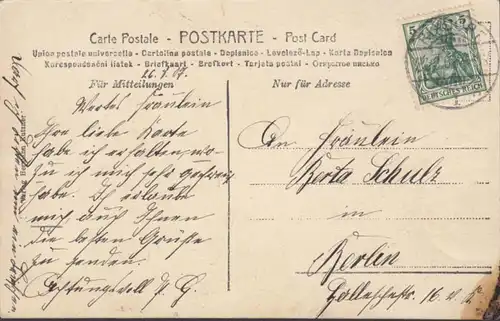 Carte Postale - POSTKARTE - Post Card
Union postale universelle - Cartolina postale - Dopisnice - Levelező-Lap - Karta Dopisnion
Korespondenční lístek - Briefkaart - Brefkort - Tarjeta postal - Открытое письмо
26.7.07.
Für Mitteilungen
Nur für Adresse
Wertes Fräulein
Ihre liebe Karte
habe ich erhalten, wo-
zu ich mich sehr gefreut
habe. Ich erlaube
mich auch Ihnen
die besten Grüße
zu senden.
Achtungsvoll
An Fräulein
Berta Schulz
in
Berlin
16
5
5
DEUTSCHES REICH
Verlag